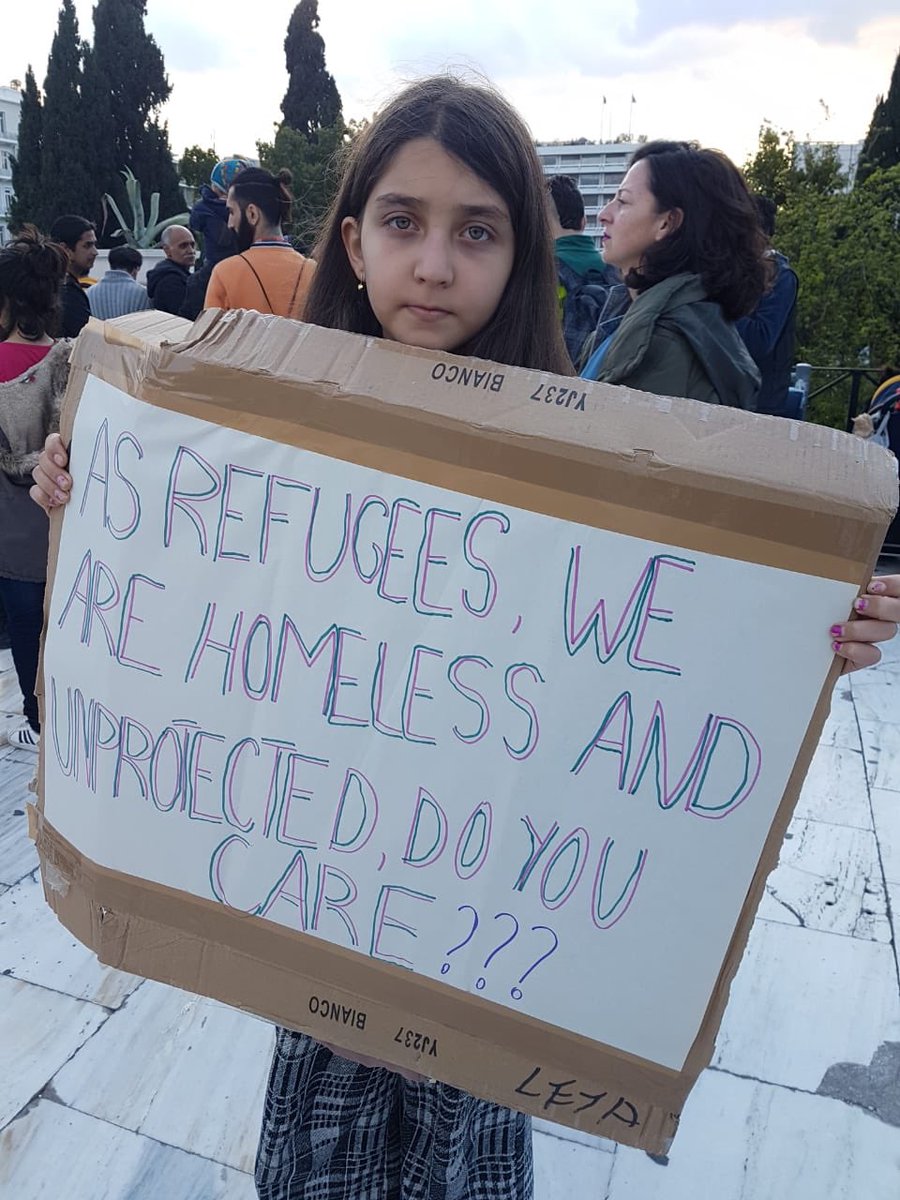 BIANCO YJ237
AS REFUGEES, WE
ARE HOMELESS AND
UNPROTECTED, DO YOU
CARE???
BIANCO YJ237
LEJA